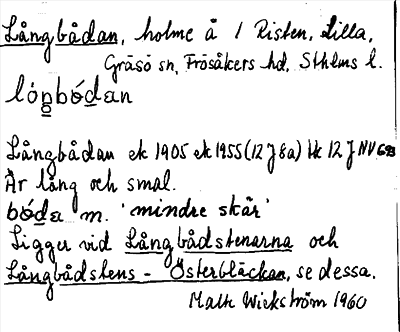 Långbådan, holme å 1 Risten, Lilla,
Gräsö sn, Frösåkers hd, Sthlms l.
lóŋbódan
Långbådan ek 1905 ek 1955 (12 J 8a) lk 12 J NV 63
Är lång och smal.
bóda m. 'mindre skär'
Ligger vid Långbådstenarna och
Långbådstens-Österbläckan, se dessa.
Math Wickström 1960